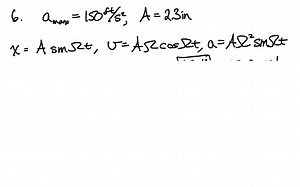 6. a_max = 150 ft/s², A = 2.3in
x = A sin Ωt, v = AΩ cos Ωt, a = AΩ² sin Ωt